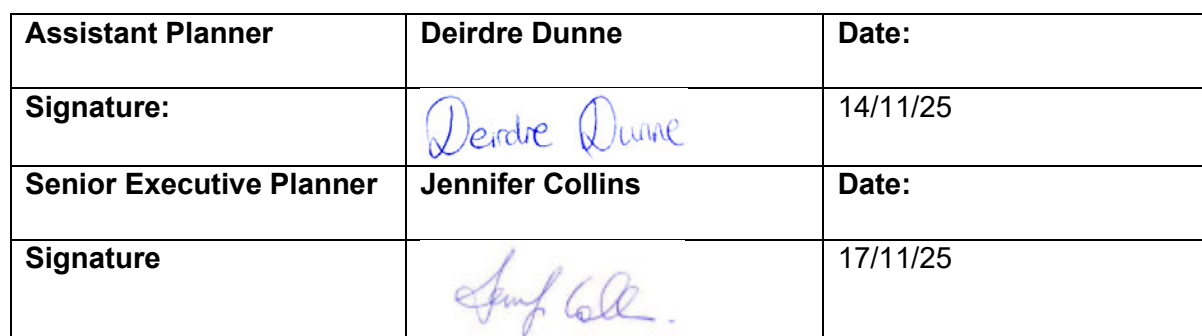 Assistant Planner Deirdre Dunne Date:
Signature: Deirdre Dunne 14/11/25
Senior Executive Planner Jennifer Collins Date:
Signature 17/11/25